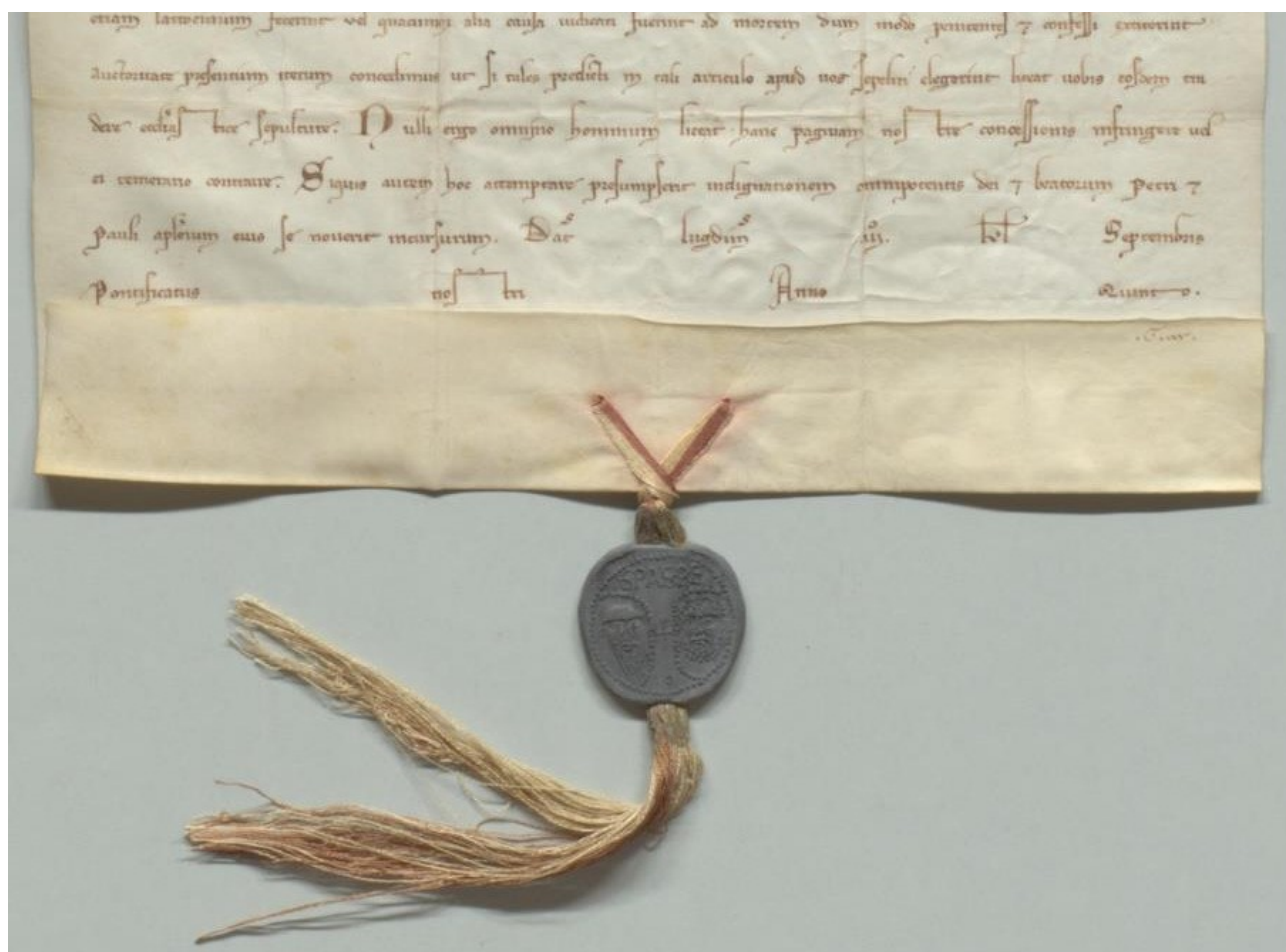 etiam latrocinium fecerint vel quacumque alia causa iudicati fuerint ad mortem dum modo penitentes ⁊ confessi extiterint
auctoritate presentium iterum concedimus ut si tales predicti in tali articulo apud vos sepeliri elegerint liceat vobis eosdem tra
dere ecclesiastice sepulture. Nulli ergo omnino hominum liceat hanc paginam nostre concessionis infringere vel
ei temerario contraire. Siquis autem hoc attemptare presumpserit indignationem omnipotentis dei ⁊ beatorum Petri ⁊
Pauli aplorum eius se noverit incursurum. Dat Lugdun kl Septembris
Pontificatus nostri Anno Quinto.
SPASPE